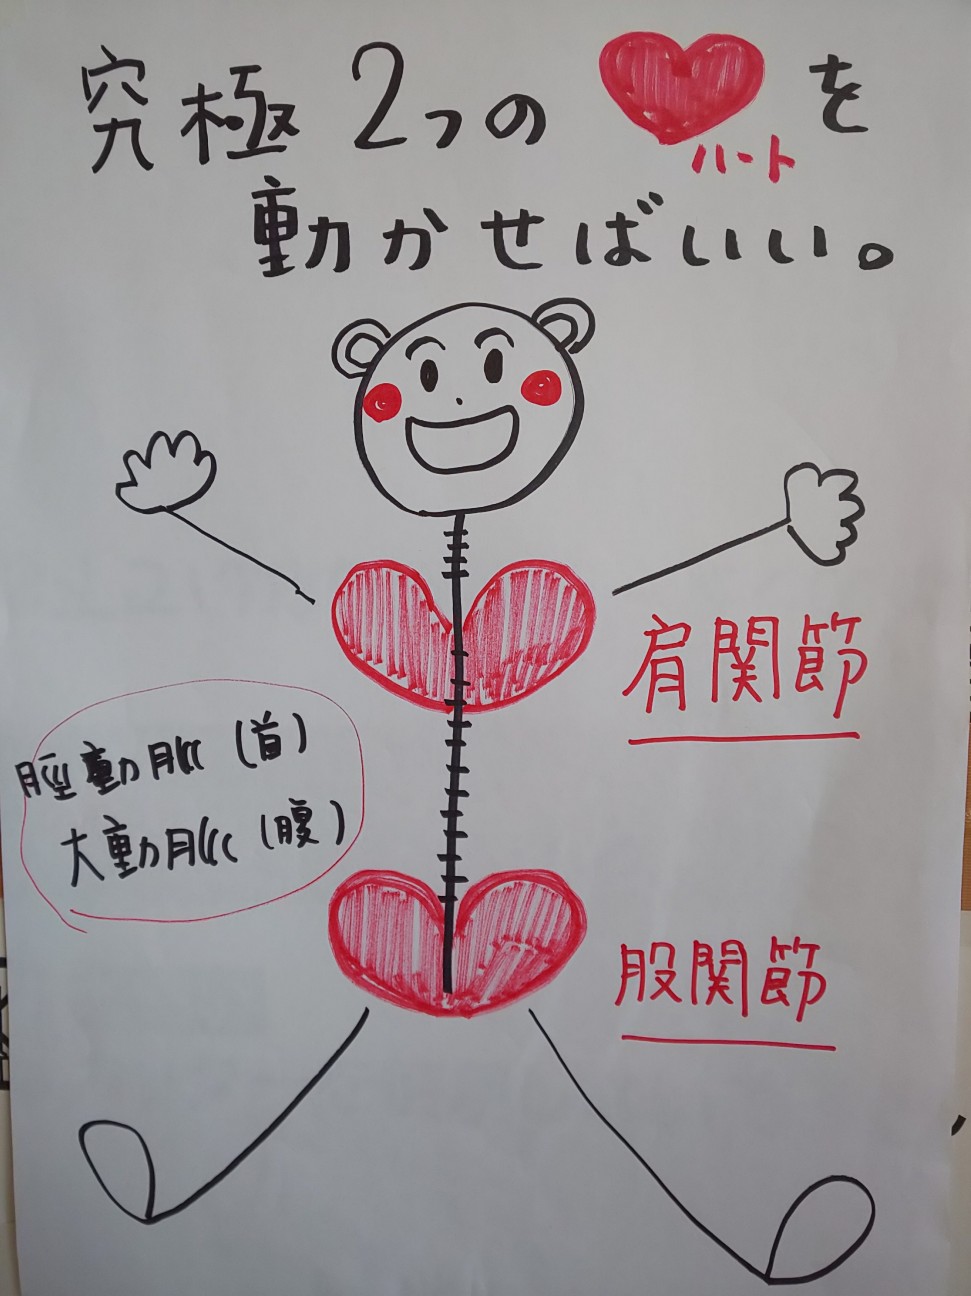 究極2つの♥を
ハート
動かせばいい。
肩関節
脛動脈(首)
大動脈(腹)
股関節